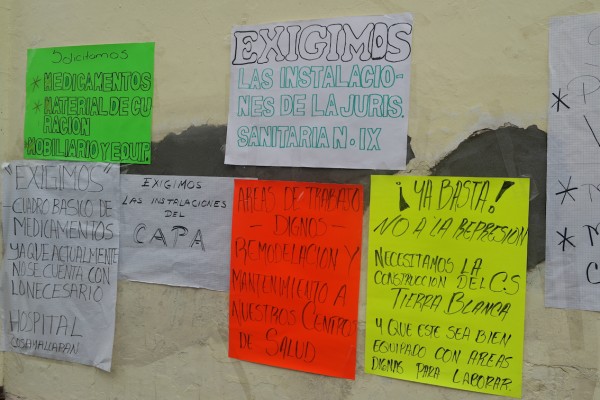 Solicitamos
* MEDICAMENTOS
* MATERIAL DE CU
RACIÓN
* MOBILIARIO Y EQUIP.
EXIGIMOS
LAS INSTALACIO-
NES DE LA JURIS.
SANITARIA N. IX
"EXIGIMOS"
- CUADRO BASICO DE
MEDICAMENTOS
YA QUE ACTUALMENTE
NO SE CUENTA CON
LO NECESARIO
HOSPITAL
COSAMALOAPAN
EXIGIMOS
LAS INSTALACIONES
DEL
CAPA
AREAS DE TRABAJO
- DIGNOS -
REMODELACION Y
MANTENIMIENTO A
NUESTROS CENTROS
DE SALUD
¡YA BASTA!
NO A LA REPRESIÓN
NECESITAMOS LA
CONSTRUCCION DEL C.S
TIERRA BLANCA
Y QUE ESTE SEA BIEN
EQUIPADO CON AREAS
DIGNAS PARA LABORAR.